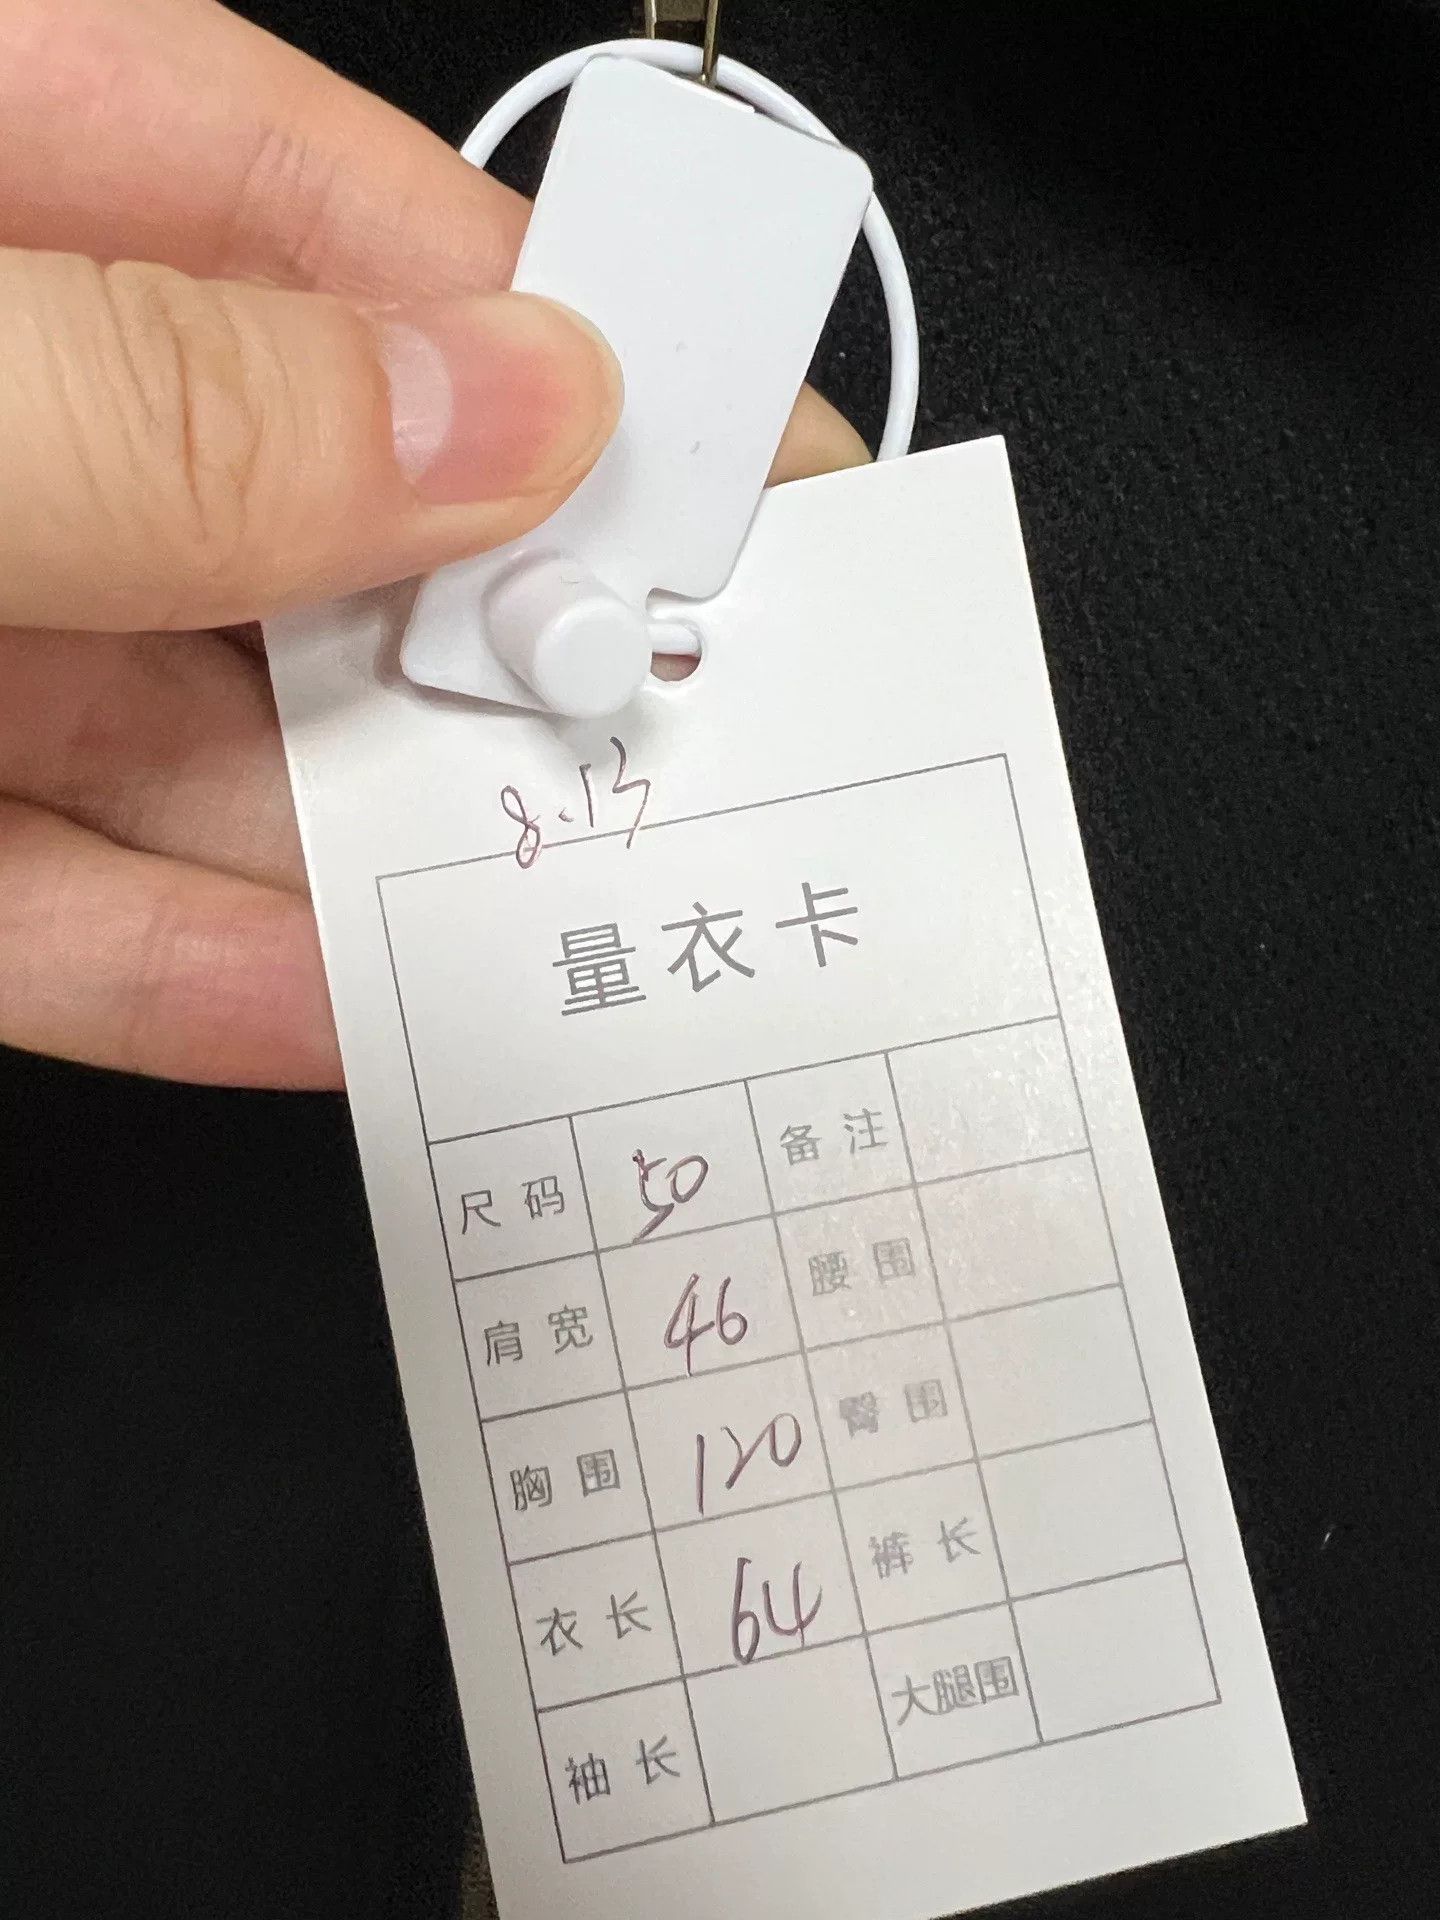 8.13
量衣卡
尺码 50 备注
肩宽 46 腰围
胸围 120 臀围
衣长 64 裤长
袖长 大腿围